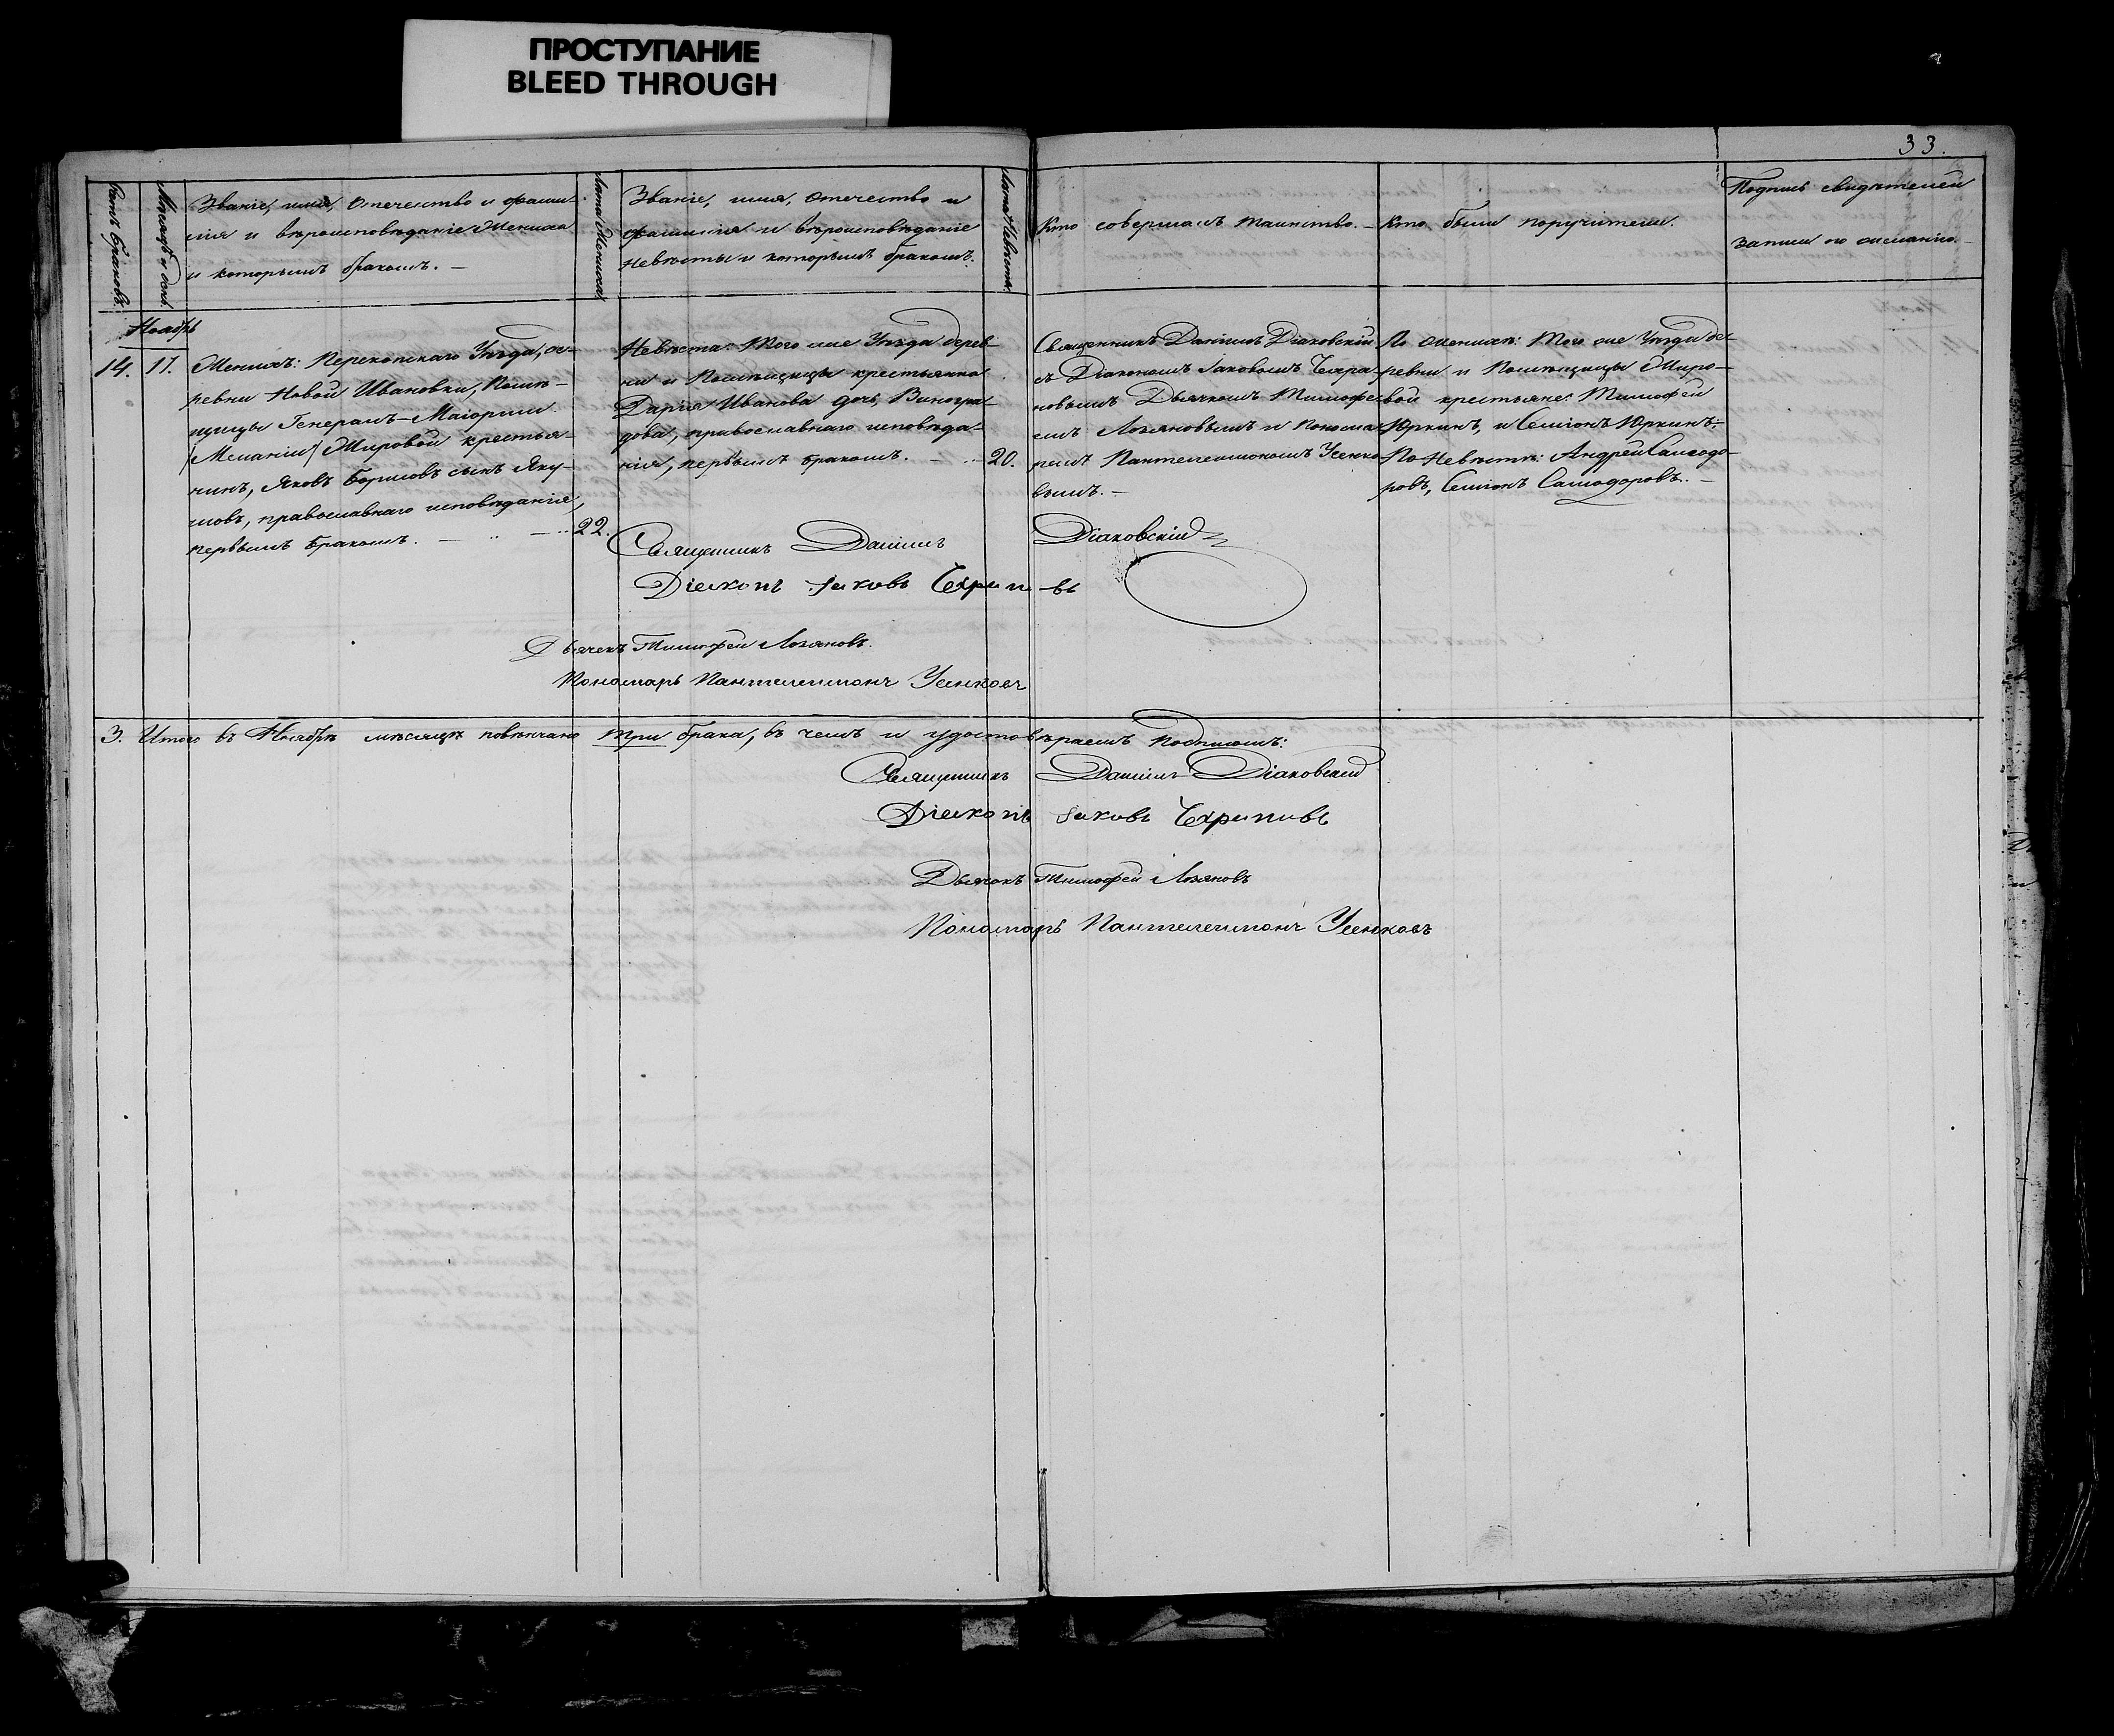 ПРОСТУПАНИЕ
BLEED THROUGH
33.
Счетъ браковъ.
Мѣсяцъ и день.
Званіе, имя, отечество и фами-
лія и вѣроисповѣданіе Жениха
и которымъ бракомъ. —
Лѣта Жениха
Званіе, имя, отечество и
фамилія и вѣроисповѣданіе
невѣсты и которымъ бракомъ.
Лѣта Невѣсты.
Кто совершалъ таинство. —
Кто были поручители.
Подпись свидѣтелей
записи по желанію. —
Ноябрь
14. 11.
Женихъ: Перекопскаго Уѣзда, де-
ревни Новой Ивановки, Помѣ-
щицы Генералъ-Маіорши
/Меланіи/ Жировой крестья-
нинъ, Яковъ Борисовъ сынъ Яку-
шовъ, православнаго исповѣданія,
первымъ бракомъ. — „ — „ 22.
Невѣста: Того же Уѣзда дерев-
ни и Помѣщицы крестьянка
Дарія Иванова дочь Виногра-
дова, православнаго исповѣда-
нія, первымъ бракомъ. — „ — 20.
Священникъ Даніилъ Діаковскій
съ Діакономъ Іаковомъ Чехра-
новымъ Дьячкомъ Тимофе-
емъ Лозановымъ и Понома-
ремъ Пантелеимономъ Усенко-
вымъ. —
По женихѣ: Того же Уѣзда де-
ревни и Помѣщицы Жиро-
вой крестьяне: Тимофей
Юркинъ, и Семіонъ Юркинъ;
По Невѣстѣ: Андрей Самодо-
ровъ, Семіонъ Самодоровъ. —
Священникъ Даніилъ Діаковскій
Діаконъ Іаковъ Чехрановъ
Дьячекъ Тимофей Лозановъ.
Пономарь Пантелеимонъ Усенковъ
3. Итого въ Ноябрѣ мѣсяцѣ повѣнчано три брака, въ чемъ и удостовѣряемъ подписомъ:
Священникъ Даніилъ Діаковскій
Діаконъ Іаковъ Чехрановъ
Дьячокъ Тимофей Лозановъ
Пономарь Пантелеимонъ Усенковъ